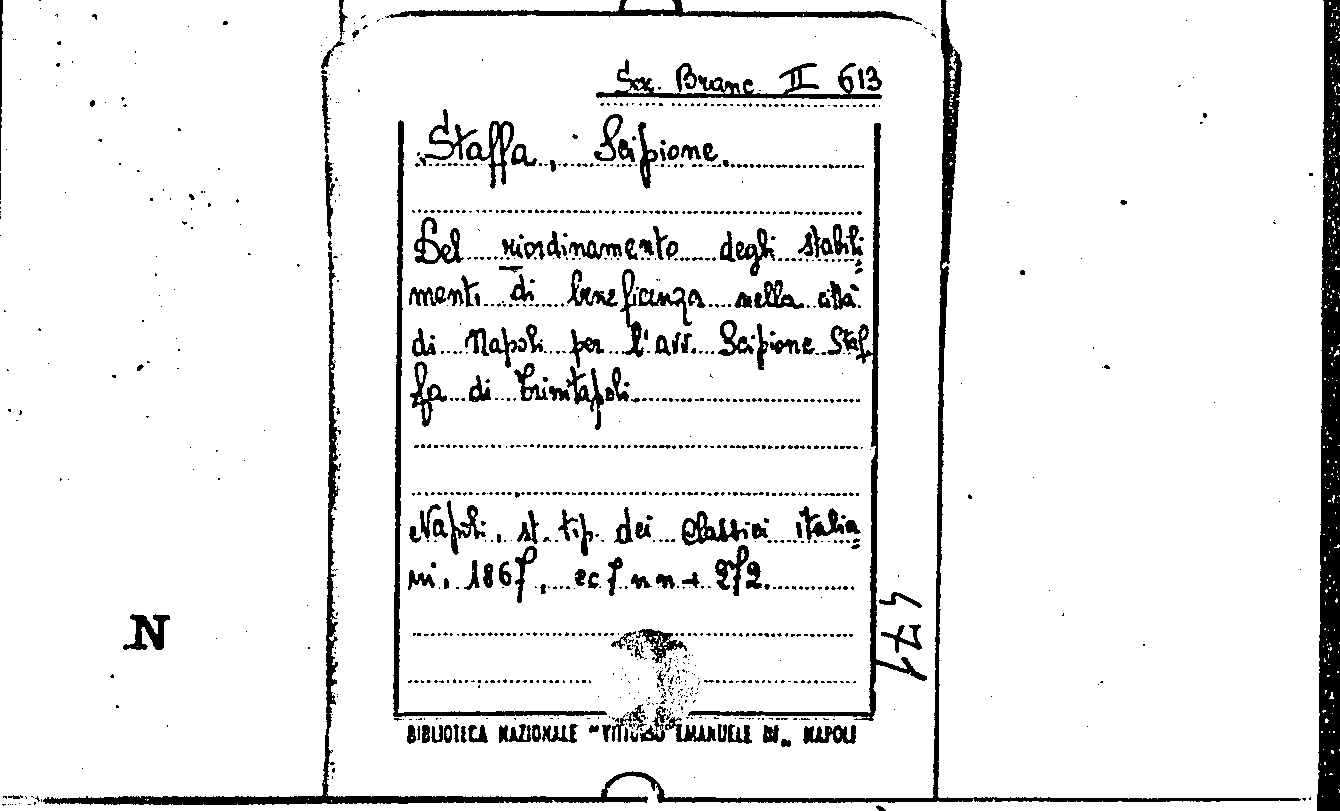 Sez. Branc. II 613
Staffa, Scipione.
Del riordinamento degli stabili=
menti di beneficenza nella città
di Napoli per l'avv. Scipione Staf
fa di Trinitapoli.
Napoli, st. tip. dei Classici italia=
ni, 1867, nn + 272.
471
N
BIBLIOTECA NAZIONALE "VITTORIO EMANUELE III" NAPOLI